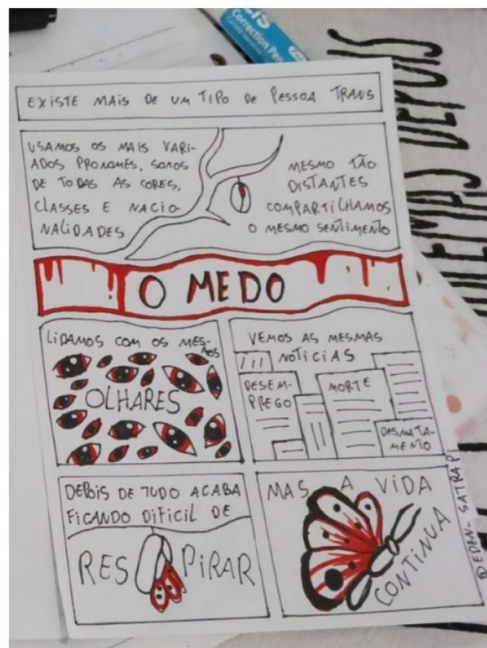 CIS
Correction Pen
DEPOIS
EXISTE MAIS DE UM TIPO DE PESSOA TRANS
USAMOS OS MAIS VARI-
ADOS PRONOMES, SOMOS
DE TODAS AS CORES,
CLASSES E NACIO-
NALIDADES
MESMO TÃO
DISTANTES
COMPARTILHAMOS
O MESMO SENTIMENTO
O MEDO
LIDAMOS COM OS MES-
MOS
OLHARES
VEMOS AS MESMAS
NOTICIAS
DESEM-
PREGO
MORTE
DESMATA-
MENTO
DEPOIS DE TUDO ACABA
FICANDO DIFICIL DE
RESPIRAR
MAS A VIDA
CONTINUA
@EDEN_SATRAPI